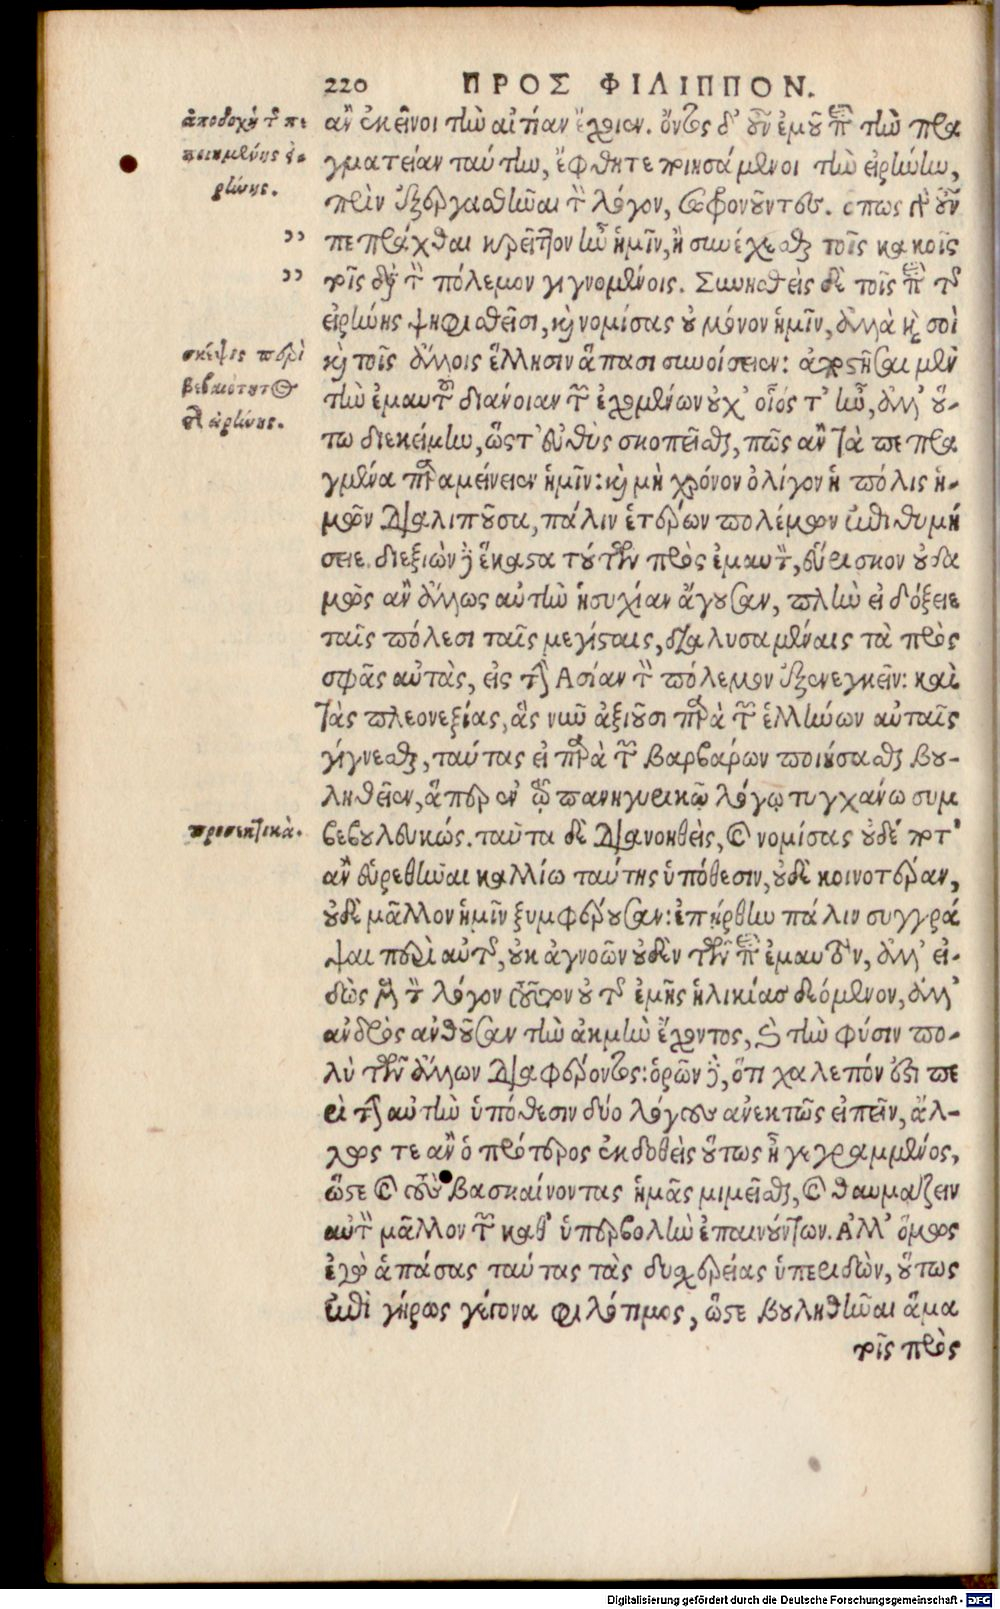 220 ΠΡΟΣ ΦΙΛΙΠΠΟΝ.
ἀποδοχὴ τ̂ πε
ποιημένης εἰ
ρήνης.
ἂν ἐκεῖνοι τὴν αἰτίαν ἔχοιεν. ὄντος δ' οὖν ἐμοῦ περὶ τὴν πρα
γματείαν ταύτην, ἔφθητε ποιησάμενοι τὴν εἰρήνην,
πρὶν ἐξεργασθῆναι τὸν λόγον, σωφρονοῦντες. ὅπως γὰρ οὖν
,, πεπρᾶχθαι κρεῖττον ἦν ἡμῖν, ἢ συνέχεσθαι τοῖς κακοῖς
,, τοῖς διὰ τὸν πόλεμον γιγνομένοις. Συνησθεὶς δὲ τοῖς περὶ τῆς
εἰρήνης ψηφισθεῖσι, καὶ νομίσας οὐ μόνον ἡμῖν, ἀλλὰ καὶ σοὶ
σκέψις περὶ
βεβαιότητος
τῆς εἰρήνης.
καὶ τοῖς ἄλλοις ἕλλησιν ἅπασι συνοίσειν: ἀποστῆσαι μὲν
τὴν ἐμαυτοῦ διάνοιαν τῶν ἐχομένων οὐχ' οἷός τ' ἦν, ἀλλ' οὕ-
τω διεκείμην, ὥστ' εὐθὺς σκοπεῖσθαι, πῶς ἂν τὰ πεπρα
γμένα παραμείνειεν ἡμῖν: καὶ μὴ χρόνον ὀλίγον ἡ πόλις ἡ-
μῶν διαλιποῦσα, πάλιν ἑτέρων πολέμων ἐπιθυμή
σειε. διεξιὼν δὲ ἕκαστα τούτων πρὸς ἐμαυτὸν, εὕρισκον οὐδα
μῶς ἂν ἄλλως αὐτὴν ἡσυχίαν ἄγουσαν, πλὴν εἰ δόξειε
ταῖς πόλεσι ταῖς μεγίσταις, διαλυσαμέναις τὰ πρὸς
σφᾶς αὐτὰς, εἰς τὴν Ἀσίαν τὸν πόλεμον ἐξενεγκεῖν: καὶ
τὰς πλεονεξίας, ἃς νῦν ἀξιοῦσι παρὰ τῶν ἑλλήνων αὐταῖς
γίγνεσθαι, ταύτας εἰ παρὰ τῶν βαρβάρων ποιήσασθαι βου-
ληθεῖεν, ἅπερ ἐν τῷ πανηγυρικῷ λόγῳ τυγχάνω συμ
προσεκτικά.
βεβουλευκώς. ταῦτα δὲ διανοηθεὶς, καὶ νομίσας οὐδέποτ'
ἂν εὑρεθῆναι καλλίω ταύτης ὑπόθεσιν, οὐδὲ κοινοτέραν,
οὐδὲ μᾶλλον ἡμῖν ξυμφέρουσαν: ἐπήρθην πάλιν συγγρά
ψαι περὶ αὐτῆς, οὐκ ἀγνοῶν οὐδὲν τῶν περὶ ἐμαυτὸν, ἀλλ' εἰ-
δὼς μὲν τὸν λόγον τοῦτον οὐ τῆς ἐμῆς ἡλικίας δεόμενον, ἀλλ'
ἀνδρὸς ἀνθοῦσαν τὴν ἀκμὴν ἔχοντος, καὶ τὴν φύσιν πο-
λὺ τῶν ἄλλων διαφέροντος: ὁρῶν δὲ, ὅτι χαλεπόν ἐστι πε
ρὶ τὴν αὐτὴν ὑπόθεσιν δύο λόγους ἀνεκτῶς εἰπεῖν, ἄλ-
λως τε ἂν ὁ πρότερος ἐκδοθεὶς οὕτως ᾖ γεγραμμένος,
ὥστε καὶ τοὺς βασκαίνοντας ἡμᾶς μιμεῖσθαι, καὶ θαυμάζειν
αὐτὸν μᾶλλον τῶν καθ' ὑπερβολὴν ἐπαινούντων. Ἀλλ' ὅμως
ἐγὼ ἁπάσας ταύτας τὰς δυσχερείας ὑπεριδὼν, οὕτως
ἐπὶ γήρως γέγονα φιλότιμος, ὥστε βουληθῆναι ἅμα
τοῖς πρὸς
Digitalisierung gefördert durch die Deutsche Forschungsgemeinschaft - DFG